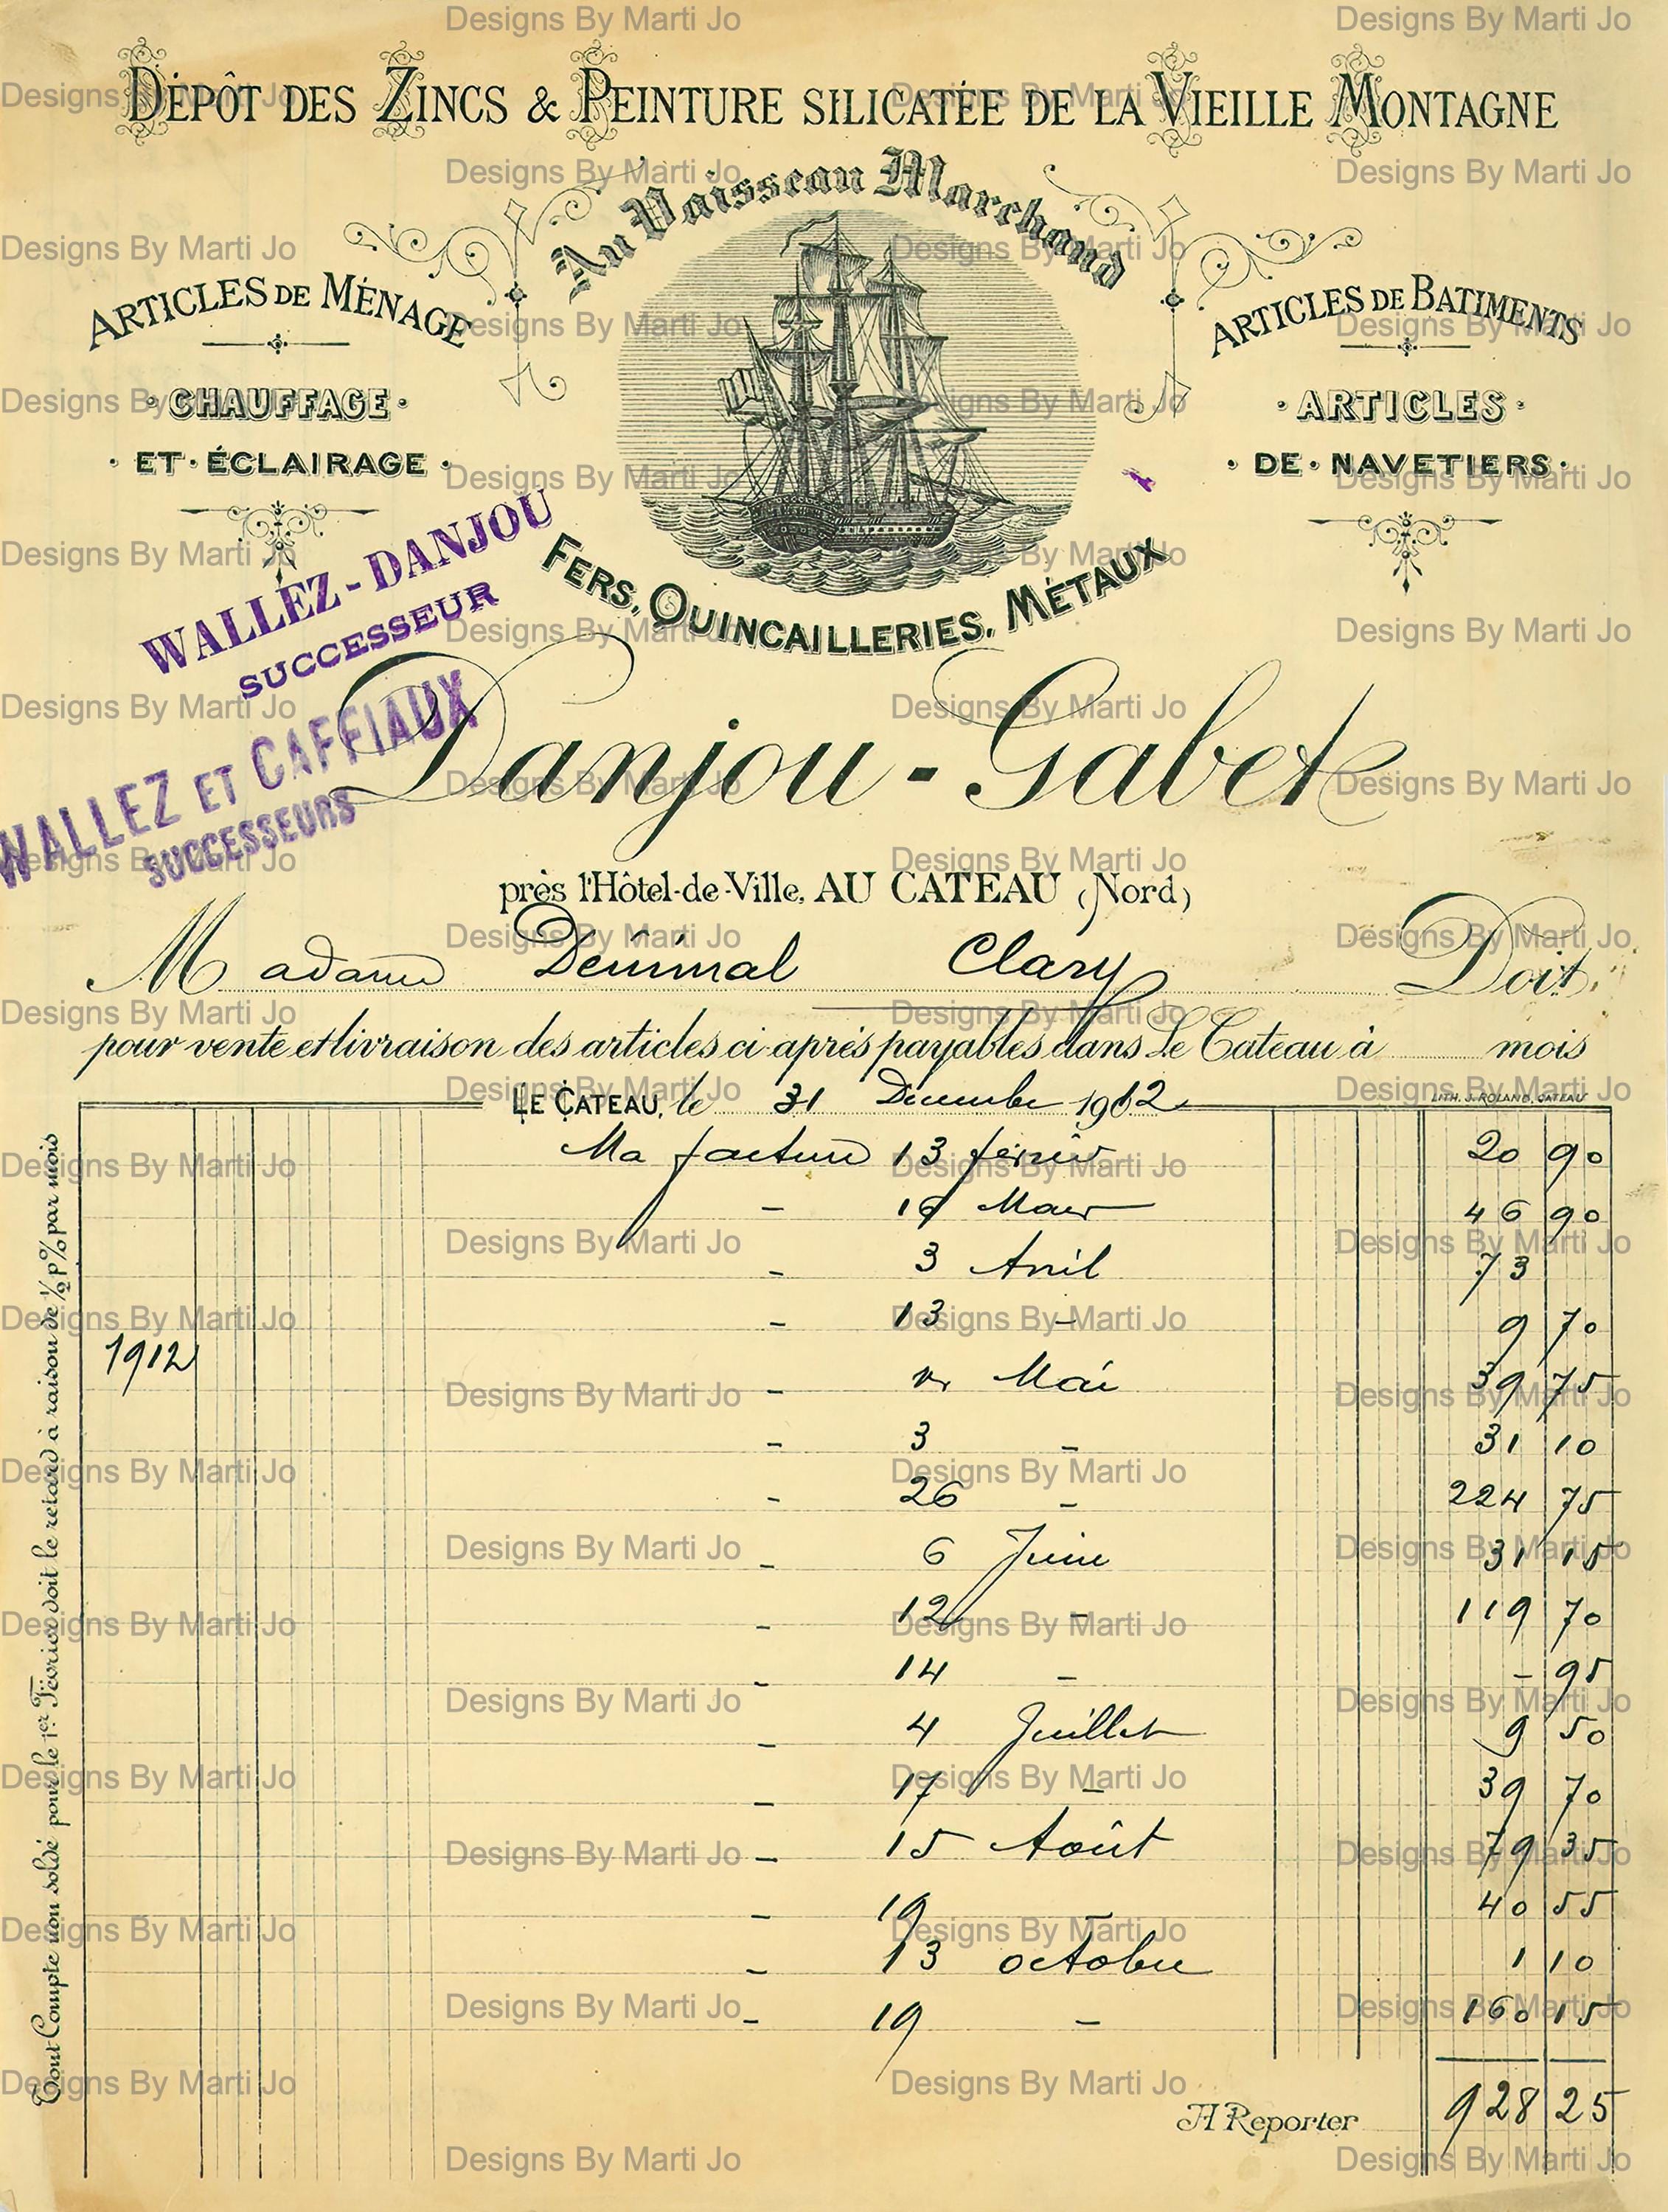 DÉPÔT DES ZINCS & PEINTURE SILICATÉE DE LA VIEILLE MONTAGNE
Au Vaisseau Marchand
ARTICLES DE MÉNAGE
CHAUFFAGE
ET ÉCLAIRAGE
ARTICLES DE BATIMENTS
ARTICLES
DE NAVETIERS
FERS, QUINCAILLERIES, MÉTAUX
WALLEZ-DANJOU
SUCCESSEUR
WALLEZ ET CAFFIAUX
SUCCESSEURS
Danjou-Gabet
près l'Hôtel-de-Ville, AU CATEAU (Nord)
Madame Clary Doit,
pour vente et livraison des articles ci-après payables dans Le Cateau à mois
LE CATEAU, le 31 Décembre 1912
LITH. J. ROLAND, CATEAU
Ma facture 13 février 20 90
- 16 Mars 46 90
- 3 Avril 73
- 13 - 9 70
1912
- Mai 39 75
- 3 - 31 10
- 26 - 224 75
- 6 Juin 31 15
- 12 - 119 70
- 14 - - 95
- 4 Juillet 9 50
- 17 - 39 70
- 15 Août 79 35
- 19 - 40 55
- 13 octobre 1 10
- 19 - 160 15
A Reporter 928 25
Tout Compte non soldé pour le 1er Février doit le retard à raison de 1/2 p% par mois
Designs By Marti Jo